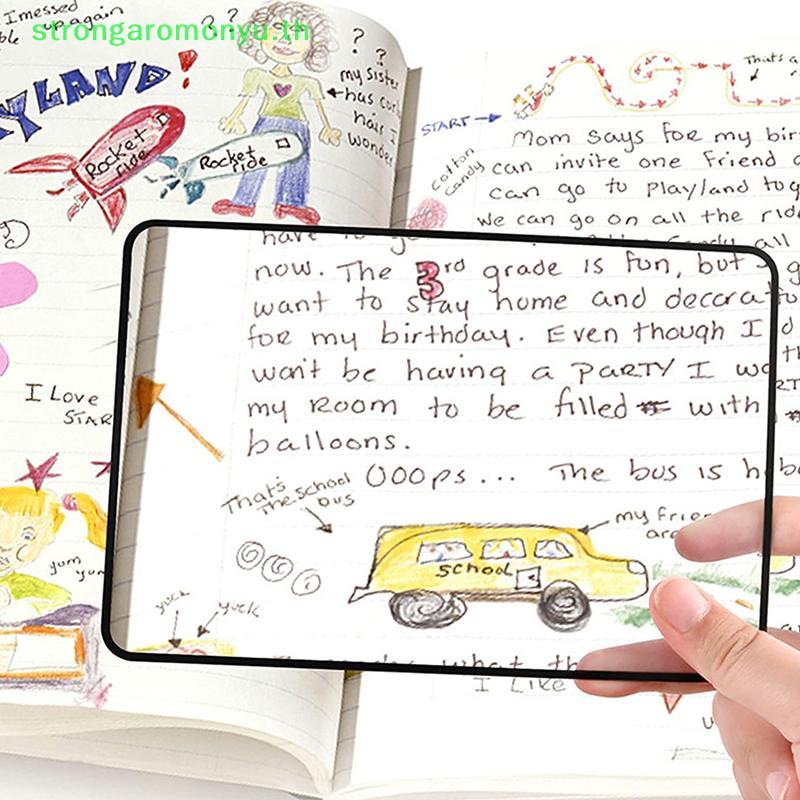 I messed
up again
strongaromonyu.th
? ?
? ?
YLAND!
my sister
has
hair I
wonder
Rocket
ride
Rocket
ride
I Love
STAR
yum
yum
That's a
START
cotton
candy
Mom says for my
can invite one friend
can go to Playland
we can go on all the
all
have
now. The 3rd grade is fun, but
want to stay home and
for my birthday. Even though I
won't be having a PARTY I
my Room to be filled with
balloons.
OOOps... The bus is
That's
the school
bus
my
School
yuck
yuck
what
I Like